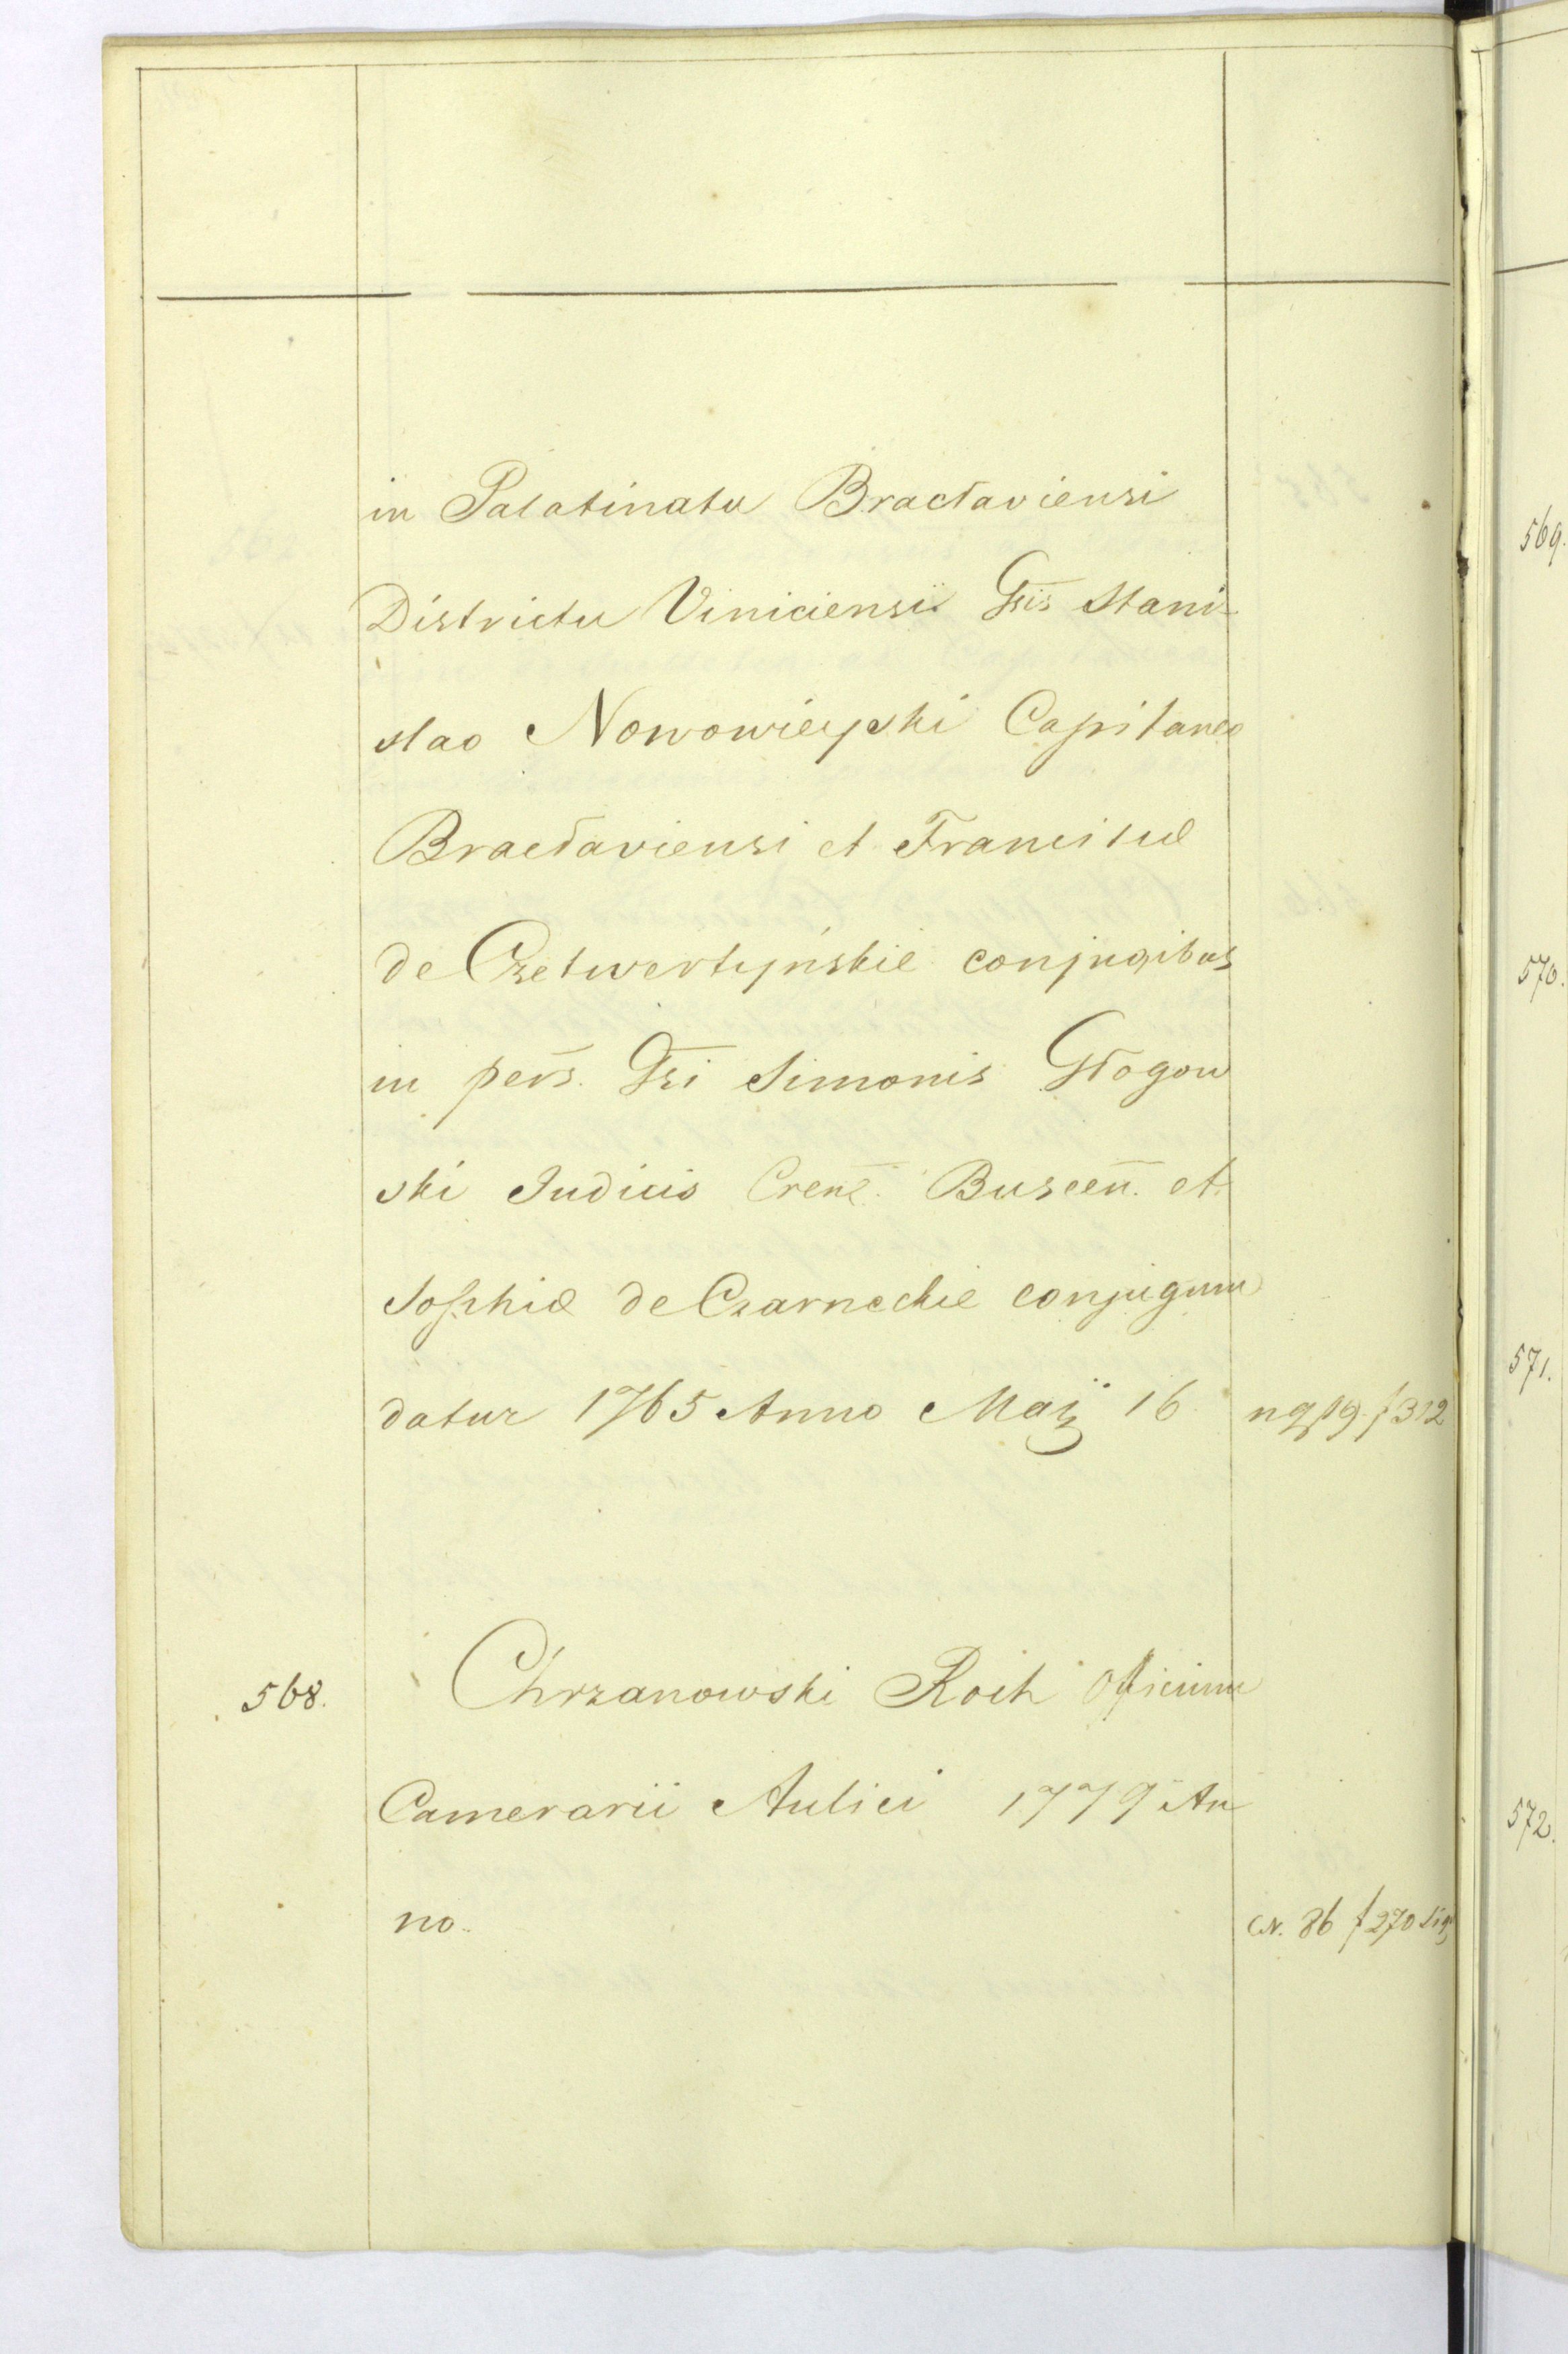 in Palatinatu Bracłaviensi
Districtu Viniciensi Gsis Stani-
slao Nowowieyski Capitaneo
Bracłaviensi et Francisæ
de Czetwertyńskie conjugibus
in pers. Gsi Simonis Głogow
ski Judicis Crenz. Buscen. et
Sophiæ de Czarneckie conjugum
datur 1765 Anno Maij 16 n 919 f 312
568. Chrzanowski Roch Officium
Camerarii Aulici 1779 An
no. N. 86 f 270 Sig
569.
570.
571.
572.